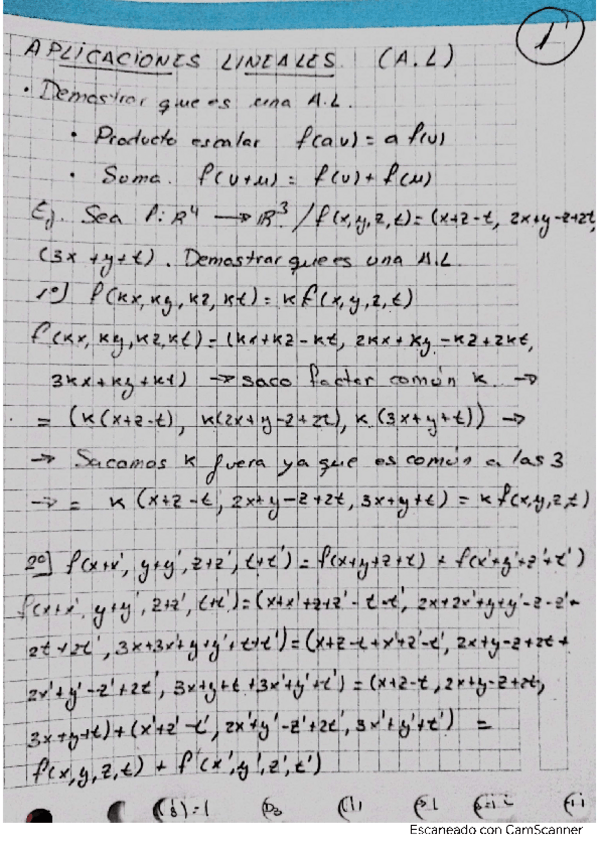 1
APLICACIONES LINEALES (A.L)
• Demostrar que es una A.L.
• Producto escalar f(av) = a f(v)
• Suma. f(v+u) = f(v) + f(u)
Ej. Sea f: R⁴ → R³ / f(x,y,z,t) = (x+z-t, 2x+y-z+2t,
(3x+y+t). Demostrar que es una A.L.
1º] f(kx, ky, kz, kt) = k f(x,y,z,t)
f(kx, ky, kz, kt) = (kx+kz-kt, 2kx+ky-kz+2kt,
3kx+ky+kt) → saco factor común k. →
= (k(x+z-t), k(2x+y-z+2t), k(3x+y+t)) →
→ Sacamos k fuera ya que es común a las 3
→ = k (x+z-t, 2x+y-z+2t, 3x+y+t) = k f(x,y,z,t)
2º] f(x+x', y+y', z+z', t+t') = f(x+y+z+t) + f(x'+y'+z'+t')
f(x+x', y+y', z+z', t+t') = (x+x'+z+z'-t-t', 2x+2x'+y+y'-z-z'+
2t+2t', 3x+3x'+y+y'+t+t') = (x+z-t+x'+z'-t', 2x+y-z+2t+
2x'+y'-z'+2t', 3x+y+t+3x'+y'+t') = (x+z-t, 2x+y-z+2t,
3x+y+t)+(x'+z'-t', 2x'+y'-z'+2t', 3x'+y'+t') =
f(x,y,z,t) + f'(x',y',z',t')
Escaneado con CamScanner